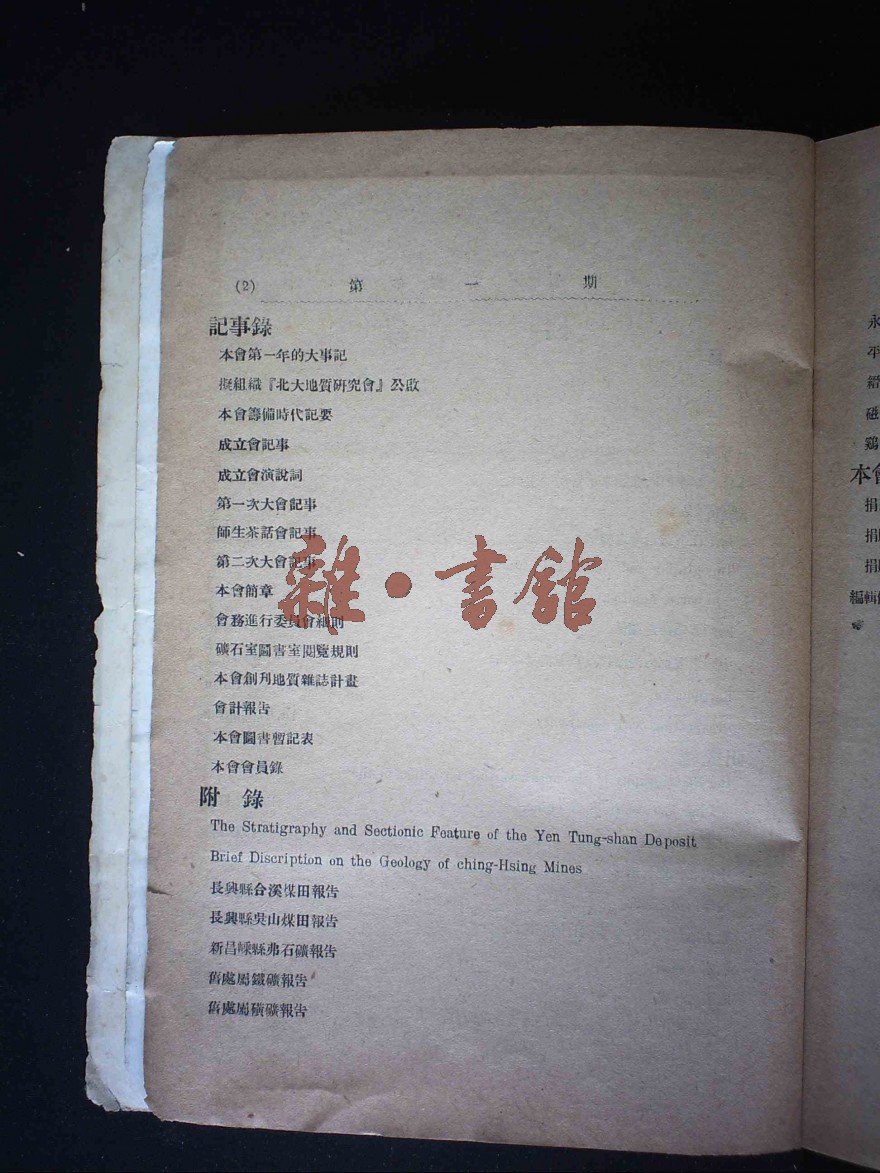 (2) 第 一 期
記事錄
本會第一年的大事記
擬組織『北大地質硏究會』公啟
本會籌備時代記要
成立會記事
成立會演說詞
第一次大會記事
師生茶話會記事
第二次大會記事
本會簡章
會務進行委員會細則
礦石室圖書室閱覽規則
本會創刋地質雜誌計畫
會計報告
本會圖書暫記表
本會會員錄
附 錄
The Stratigraphy and Sectionic Feature of the Yen Tung-shan Deposit
Brief Discription on the Geology of ching-Hsing Mines
長興縣合溪煤田報告
長興縣吳山煤田報告
新昌嵊縣弗石礦報告
舊處屬鐵礦報告
舊處屬磺礦報告
雜·書館
永
平
縉
磁
鷄
本會
捐
捐
捐
編輯